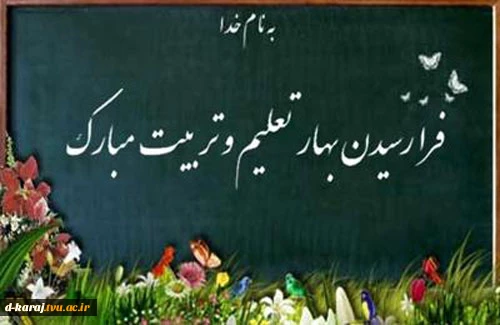 به نام خدا
فرا رسیدن بهار تعلیم و تربیت مبارک
d-karaj.tvu.ac.ir